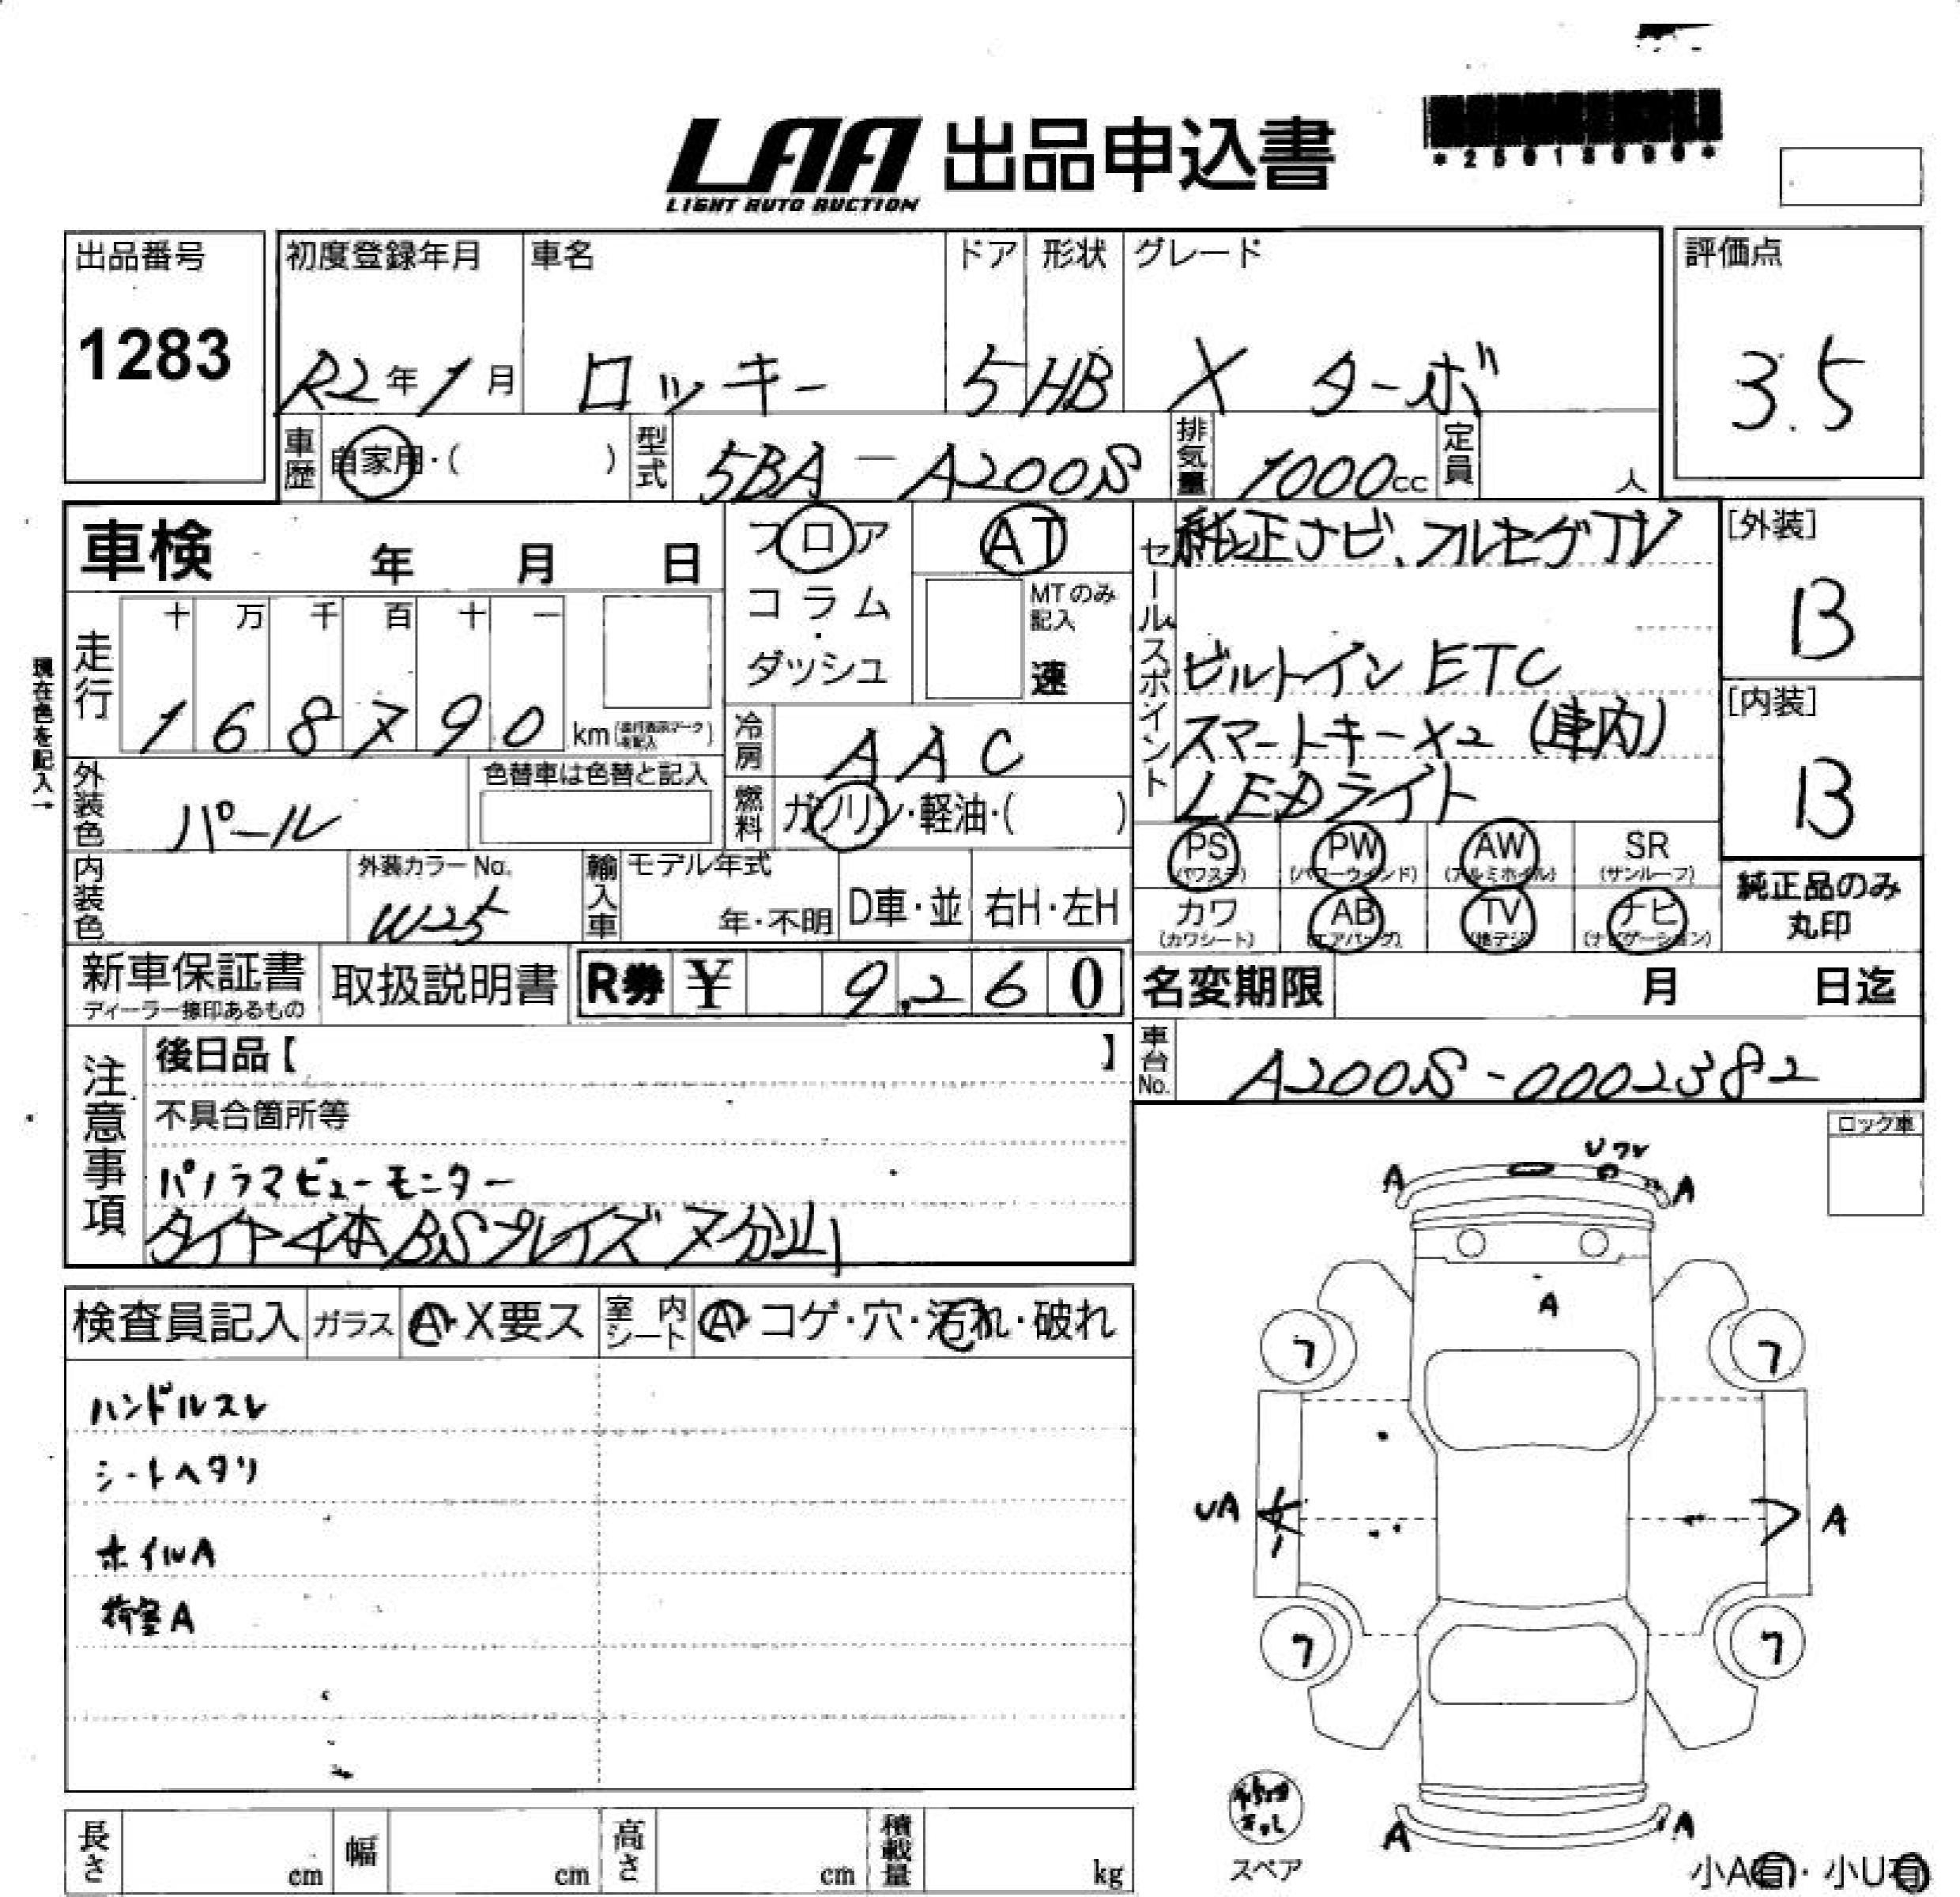 LAA 出品申込書
LIGHT AUTO AUCTION
出品番号
1283
初度登録年月
R2年1月
車名
ロッキー
ドア
5
形状
HB
グレード
X ターボ
評価点
3.5
車歴 自家用・( )
型式 5BA-A200S
排気量 1000cc
定員 人
車検 年 月 日
フロア
コラム
・
ダッシュ
AT
MTのみ記入
速
セールスポイント
純正ナビ、フルセグTV
ビルトインETC
スマートキー×2 (車内)
LEDライト
[外装]
B
[内装]
B
現在色を記入→
走行
十 万 千 百 十 一
1 6 8 7 9 0 km
冷房 AAC
外装色 パール
色替車は色替と記入
燃料 ガソリン・軽油・( )
内装色
外装カラーNo.
W25
輸入車
モデル年式
年・不明
D車・並
右H・左H
PS (パワステ)
PW (パワーウインド)
AW (アルミホイル)
SR (サンルーフ)
カワ (カワシート)
AB (エアバッグ)
TV (地デジ)
ナビ (ナビゲーション)
純正品のみ
丸印
新車保証書
ディーラー捺印あるもの
取扱説明書
R券 ¥ 9,260
名変期限 月 日迄
車台No. A200S-0002382
注意事項
後日品【 】
不具合箇所等
パノラマビューモニター
タイヤ4本BSプレイズ7分山
ロック車
検査員記入
ガラス A・X要ス
室内シート A・コゲ・穴・汚れ・破れ
ハンドルスレ
シートヘタリ
ホイルA
荷室A
A A
A
7 7
UA A
7 7
A A
スペア
小A有・小U有
長さ cm
幅 cm
高さ cm
積載量 kg